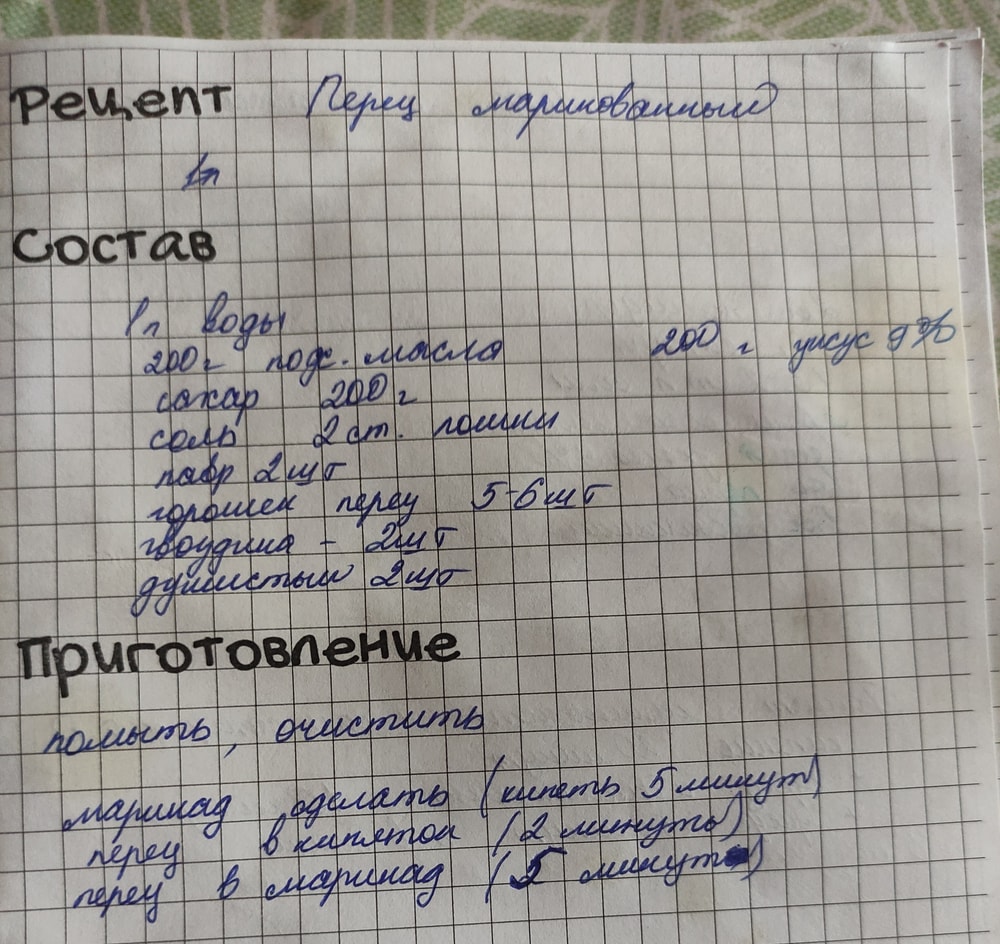 Рецепт Перец маринованный
1л
Состав
1л воды
200г подс. масла 200 г уксус 9%
сахар 200 г
соль 2 ст. ложки
лавр 2 шт
горошек перец 5-6 шт
гвоздика - 2 шт
душистый 2 шт
Приготовление
помыть, очистить
маринад сделать (кипеть 5 минут)
перец в кипяток (2 минуты)
перец в маринад (5 минут)